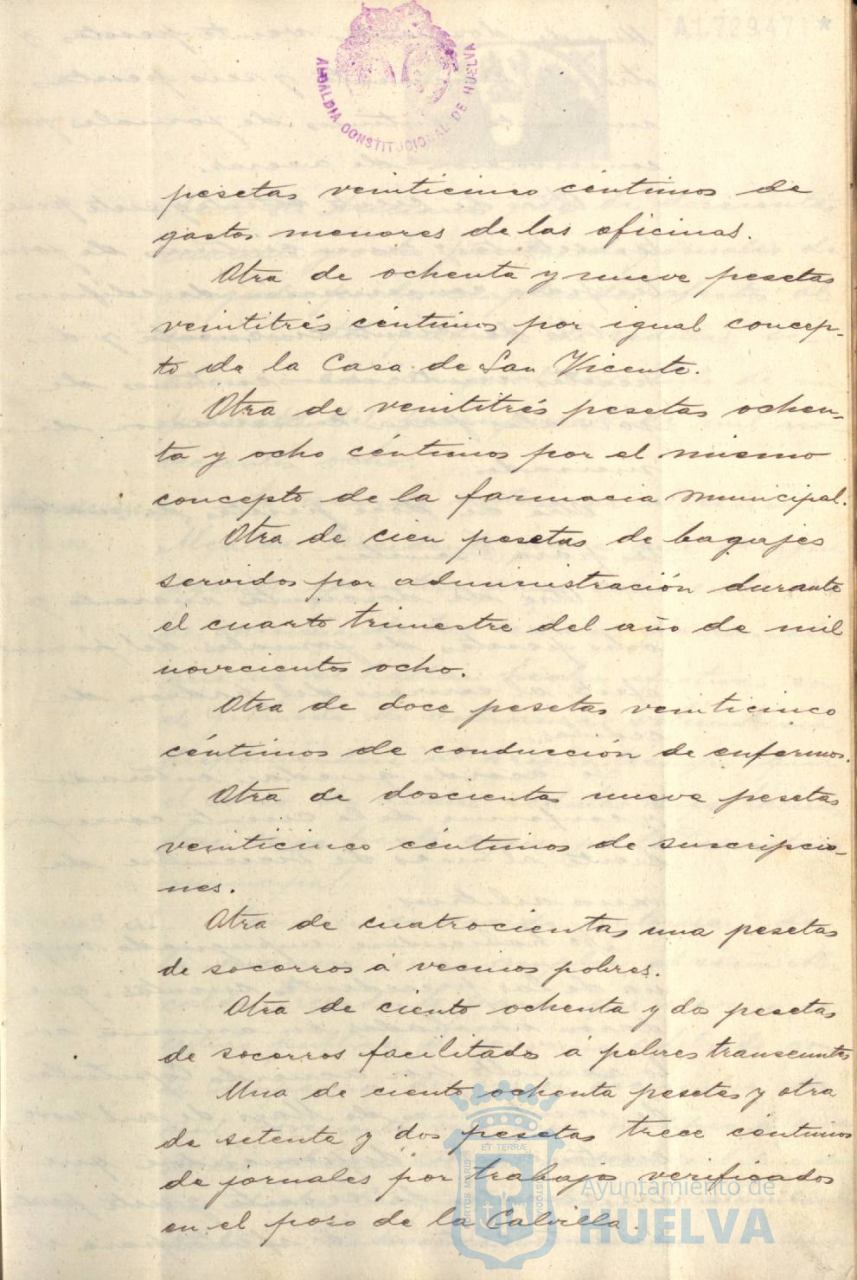 A1.729.471 *
ALCALDIA CONSTITUCIONAL DE HUELVA
pesetas veinticinco céntimos de
gastos menores de las oficinas.
Otra de ochenta y nueve pesetas
veintitrés céntimos por igual concep-
to de la Casa de San Vicente.
Otra de veintitrés pesetas ochen-
ta y ocho céntimos por el mismo
concepto de la farmacia municipal.
Otra de cien pesetas de bagajes
servidos por administración durante
el cuarto trimestre del año de mil
novecientos ocho.
Otra de doce pesetas veinticinco
céntimos de conducción de enfermos.
Otra de doscientas nueve pesetas
veinticinco céntimos de suscripcio-
nes.
Otra de cuatrocientas una pesetas
de socorros á vecinos pobres.
Otra de ciento ochenta y dos pesetas
de socorros facilitados á pobres transeuntes
Una de ciento ochenta pesetas y otra
de setenta y dos pesetas trece céntimos
de jornales por trabajos verificados
en el pozo de la Calvilla.
ET TERRÆ
PORTUS MARIS
CUSTODIA
Ayuntamiento de
HUELVA